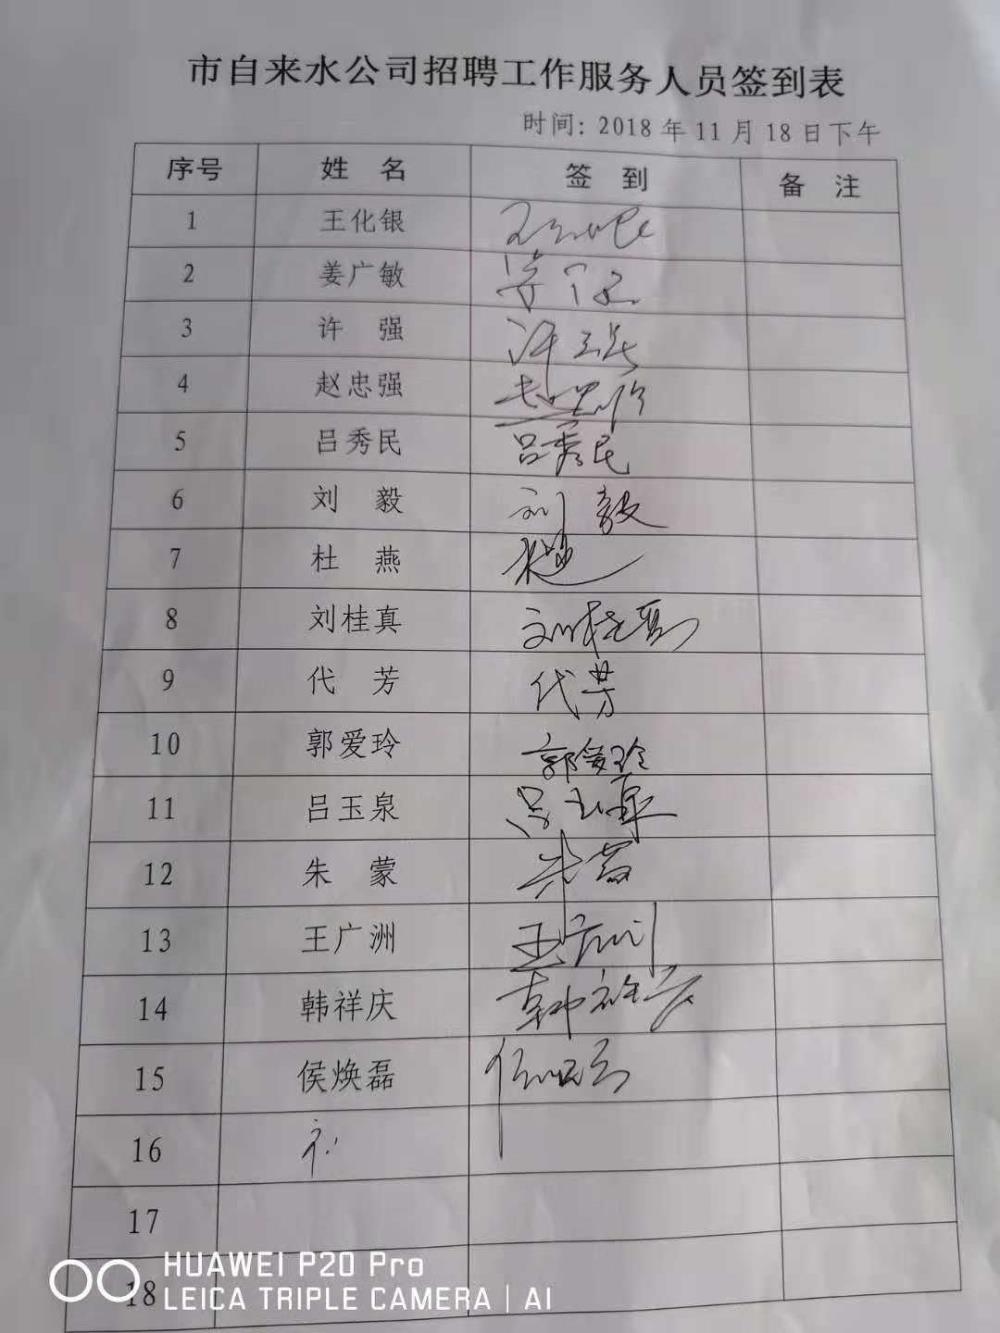 市自来水公司招聘工作服务人员签到表
时间: 2018年11月18日下午
序号 姓 名 签 到 备 注
1 王化银
2 姜广敏
3 许 强 许强
4 赵忠强
5 吕秀民 吕秀民
6 刘 毅 刘毅
7 杜 燕
8 刘桂真 刘桂真
9 代 芳 代芳
10 郭爱玲 郭爱玲
11 吕玉泉 吕玉泉
12 朱 蒙 朱蒙
13 王广洲 王广洲
14 韩祥庆 韩祥庆
15 侯焕磊
16
17
18
HUAWEI P20 Pro
LEICA TRIPLE CAMERA | AI